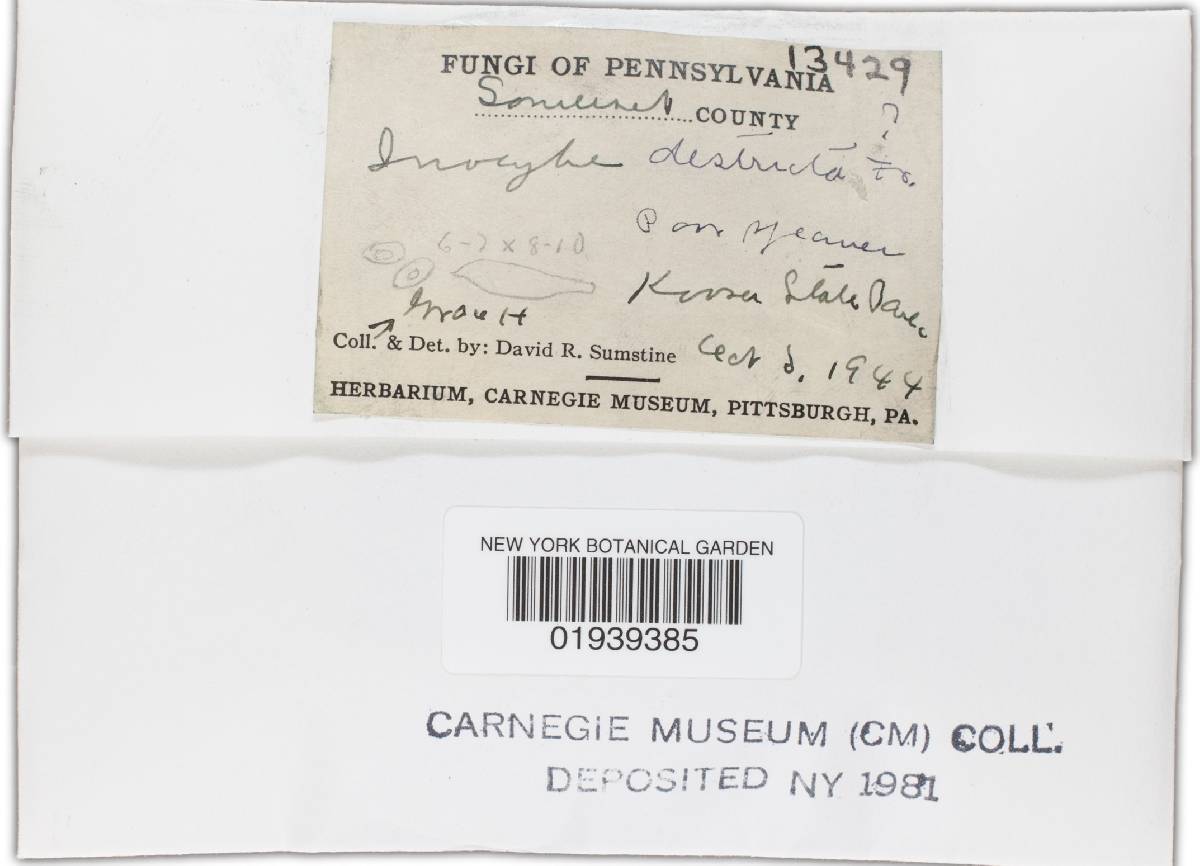 13429
FUNGI OF PENNSYLVANIA
Somerset COUNTY
?
Inocybe destricta Fr.
6-7 x 8-10
Kooser State Park
Coll. & Det. by: David R. Sumstine
1944
HERBARIUM, CARNEGIE MUSEUM, PITTSBURGH, PA.
NEW YORK BOTANICAL GARDEN
01939385
CARNEGIE MUSEUM (CM) COLL.
DEPOSITED NY 1981